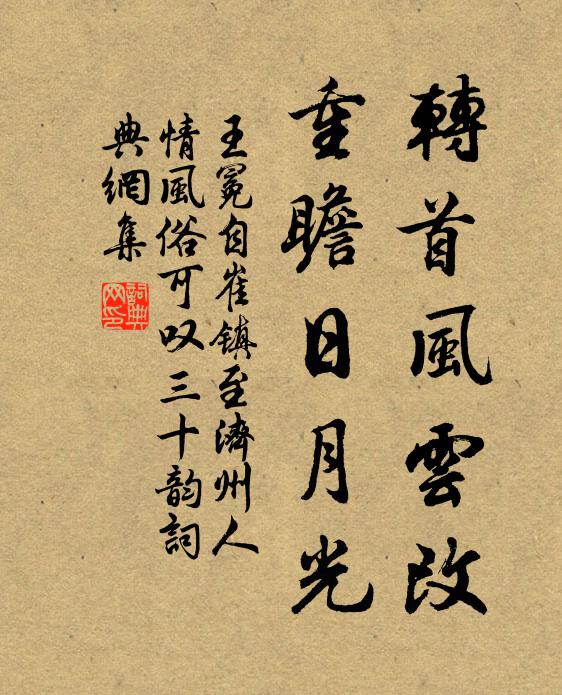 轉首風雲改
重瞻日月光
王冕自崔鎮至濟州人
情風俗可叹三十韵詞
典網集
詞典网印